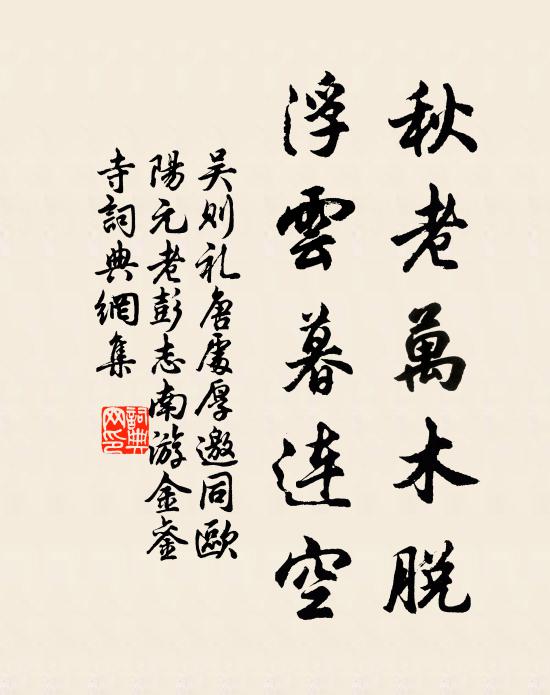 秋老萬木脫
浮雲暮連空
吴则礼唐處厚邀同歐
陽元老彭志南游金鑾
寺詞典網集
詞典
网印